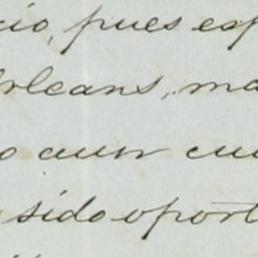 cio, pues esp
Orleans, ma
o aun cu
sido oport